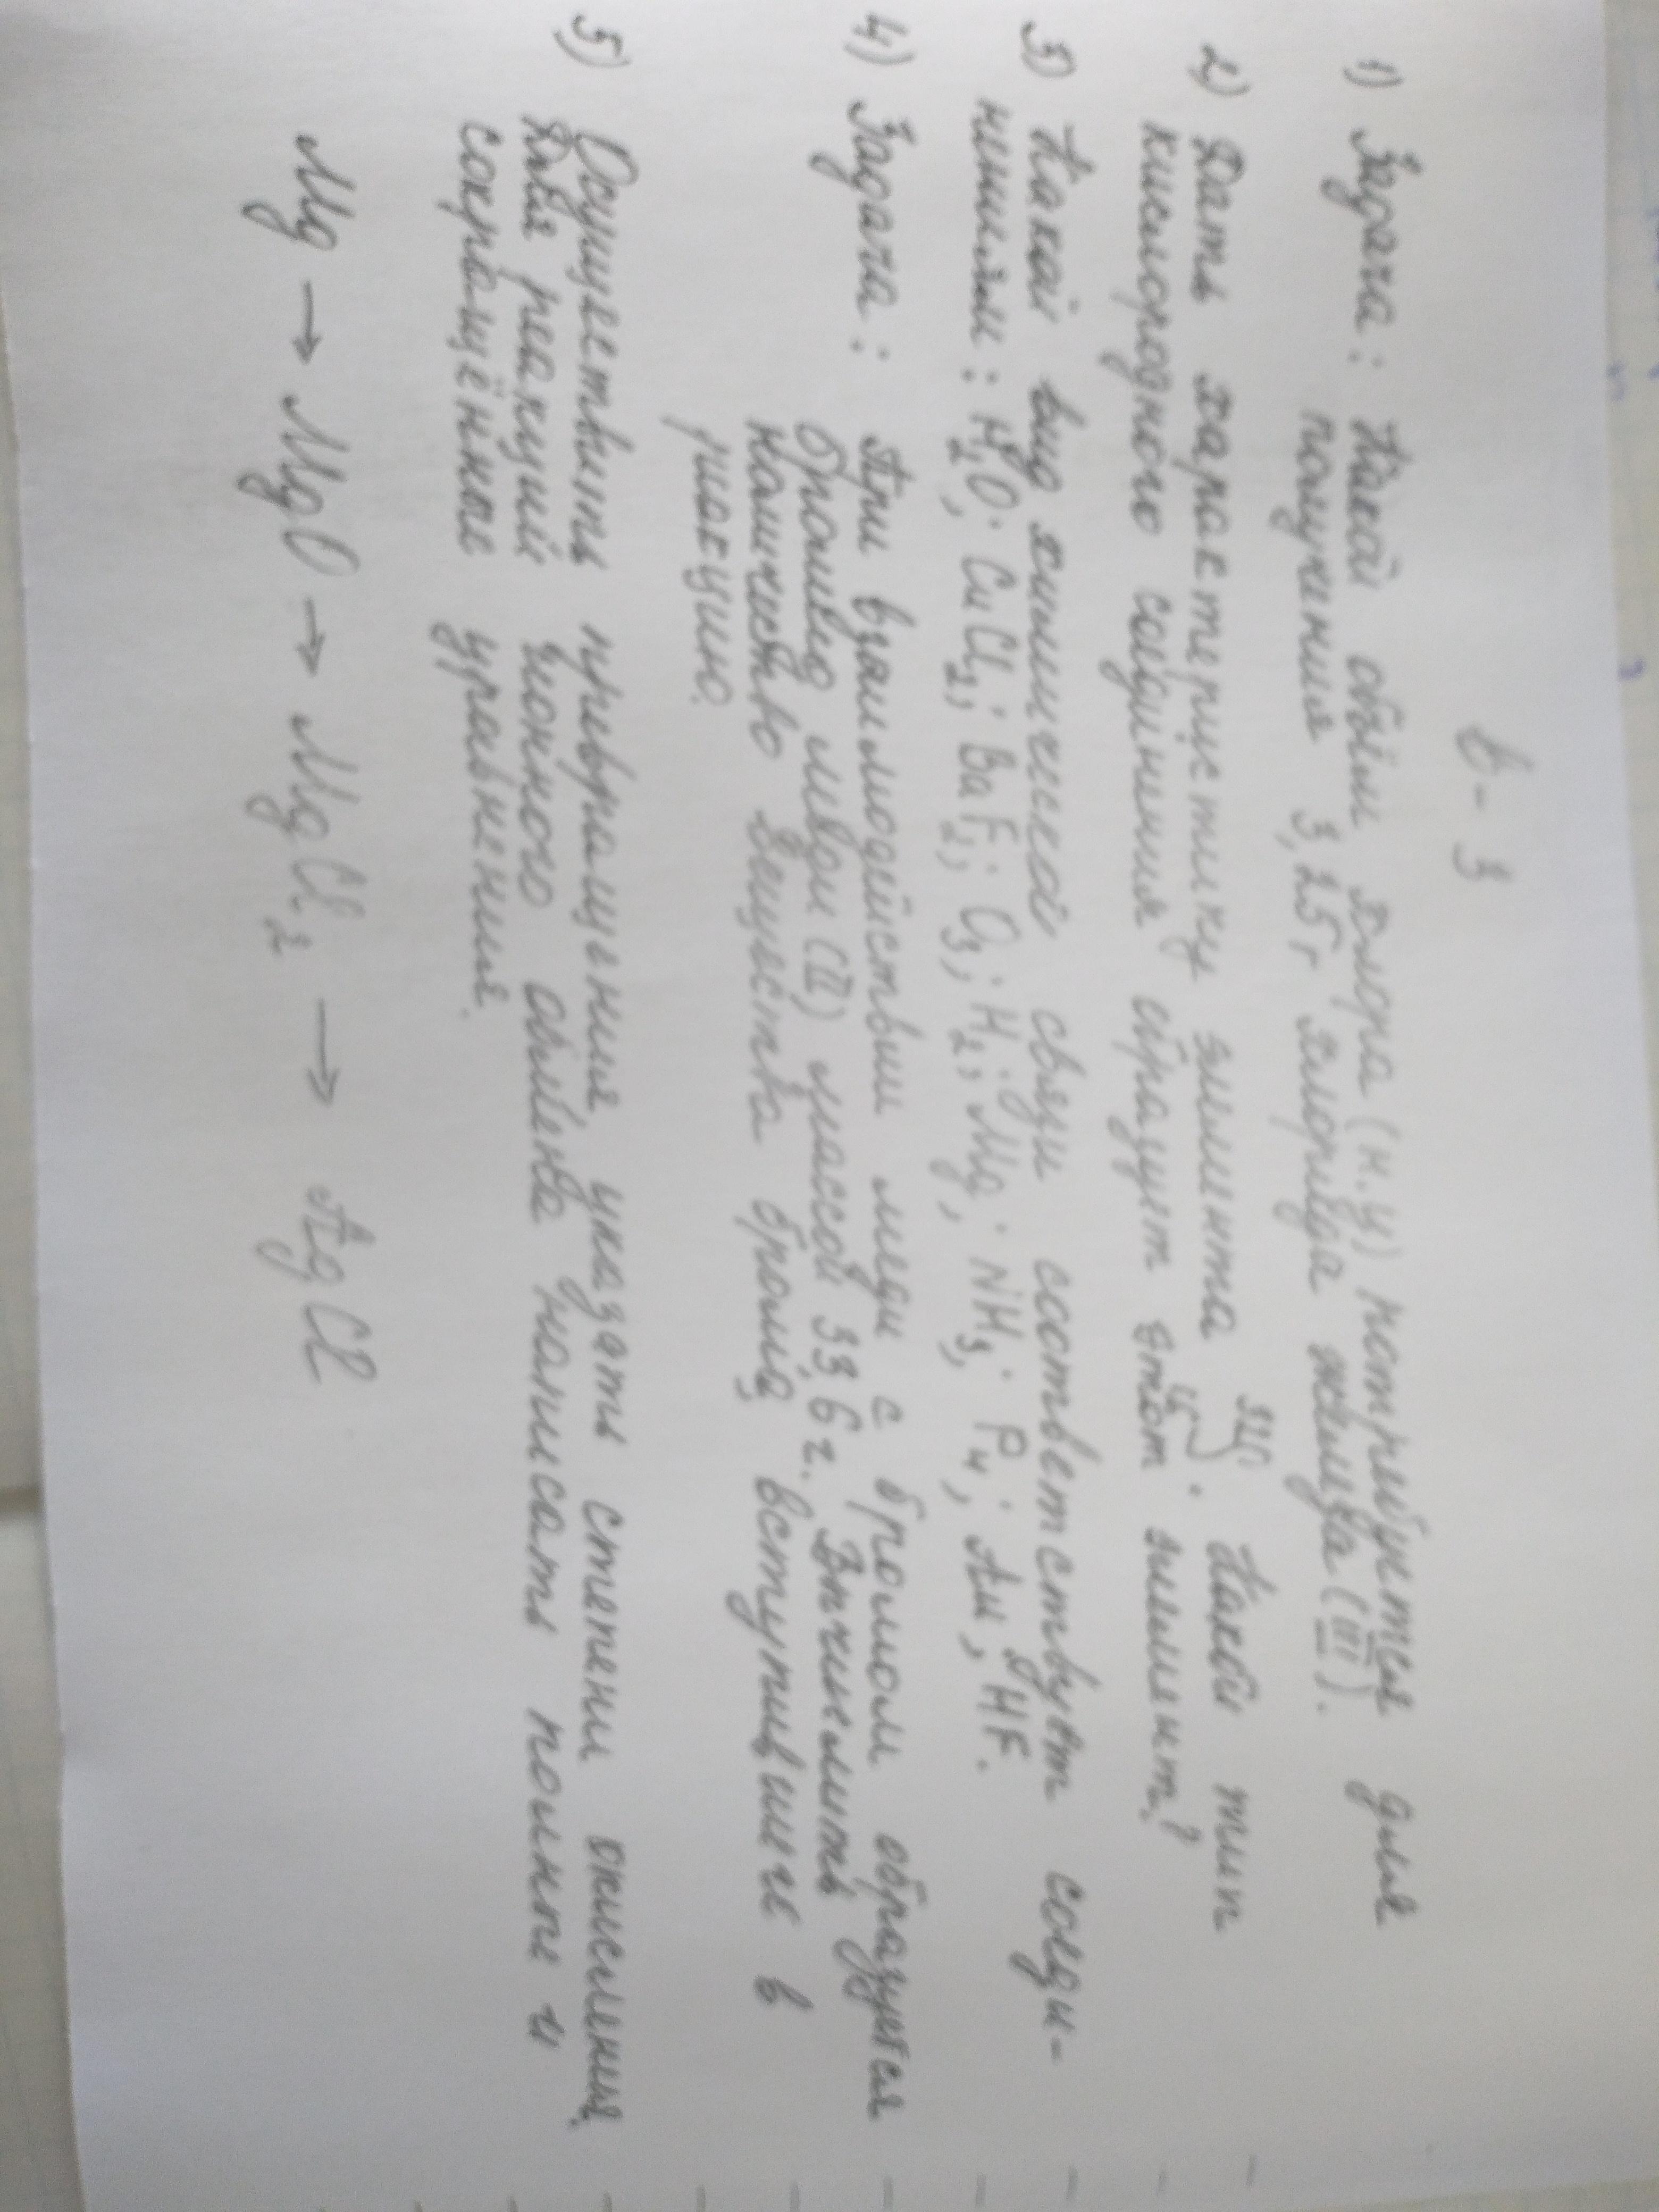 В - 3
1) Задача: Какой объём хлора (н.у) потребуется для
получения 3,25г хлорида железа (III).
2) Дать характеристику элемента ³²₁₅. Какой тип
кислородного соединения образует этот элемент?
3) Какой вид химической связи соответствует соеди-
нениям: H₂O; CuCl₂; BaF₂; O₃; H₂; Mg; NH₃; P₄; Au; HF.
4) Задача: При взаимодействии меди с бромом образуется
бромид меди (II) массой 33,6 г. Вычислить
количество вещества брома, вступившее в
реакцию.
5) Осуществить превращения, указать степени окисления.
Для реакций ионного обмена написать полные и
сокращённые уравнения.
Mg → MgO → MgCl₂ → AgCl